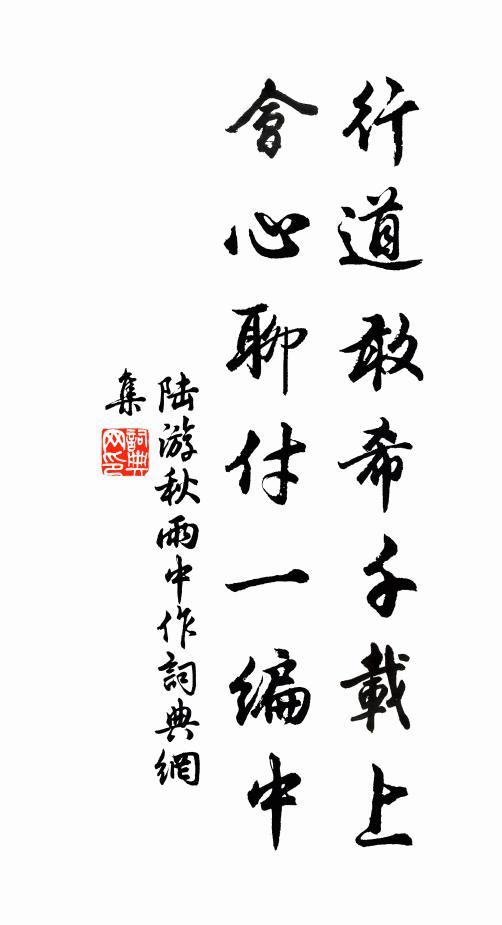 行道敢希千載上
會心聊付一編中
陸游秋雨中作詞典網
集
詞典
网印